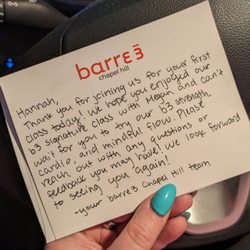 barre3
chapel hill
Hannah,
Thank you for joining us for your first
class today! We hope you enjoyed our
b3 signature class with Megan and can't
wait for you to try our b3 strength,
cardio, and mindful flow. Please
reach out with any questions or
feedback you may have! We look forward
to seeing you again!
-your barre3 Chapel Hill team